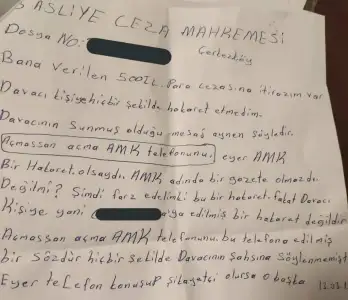 3 ASLİYE CEZA MAHKEMESİ
Dosya NO: Çerkezköy
Bana verilen 500TL. Para cezasına itirazım var
Davacı kişiye hiçbir şekilde hakaret etmedim.
Davacının Sunmuş olduğu mesaj aynen şöyledir.
Açmassan açma AMK telefonunu. eğer AMK
Bir Hakaret olsaydı. AMK adında bir gazete olmazdı.
Değilmi? Şimdi farz edelimki bu bir hakaret. fakat Davacı
Kişiye yani 'ya edilmiş bir hakaret değildir
Açmassan açma AMK telefonunu. bu telefona edilmiş
bir sözdür hiçbir şekilde Davacının şahsına söylenmemişt
Eğer telefon konuşup şikayetçi olursa o başka